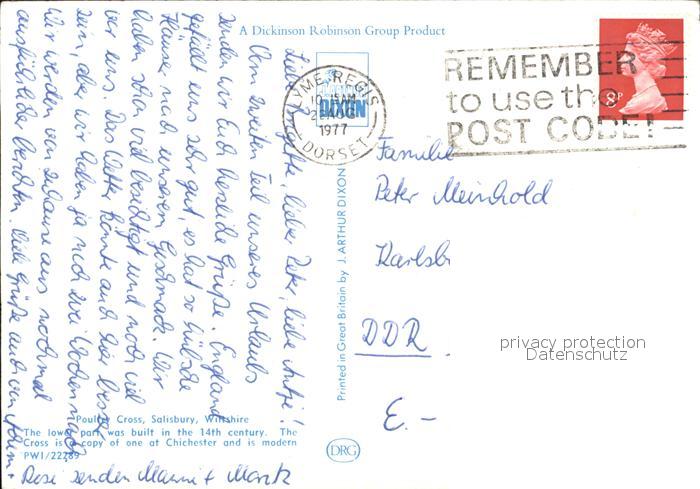 A Dickinson Robinson Group Product
Liebe Brigitte, lieber Peter, liebe Antje!
Vom zweiten Teil unseres Urlaubs
senden wir Euch herzliche Grüße. England
gefällt uns sehr gut, es hat so hübsche
Häuser nach unserem Geschmack. Wir
haben schon viel besichtigt und noch viel
vor uns. Das Wetter könnte auch hier besser
sein, aber wir haben ja noch zwei Wochen
Wir werden von zuhause aus nochmal
ausführlicher berichten. Viele Grüße auch von
Rosi senden Manni + Mark
Poultry Cross, Salisbury, Wiltshire
The lower part was built in the 14th century. The
Cross is a copy of one at Chichester and is modern
PWI/22289
Printed in Great Britain by J. ARTHUR DIXON
DIXON
LYME REGIS
10 15AM
2 AUG
1977
DORSET
REMEMBER
to use the
POST CODE!
8P
Familie
Peter Meinhold
Karlsb
DDR
E.-
privacy protection
Datenschutz
DRG